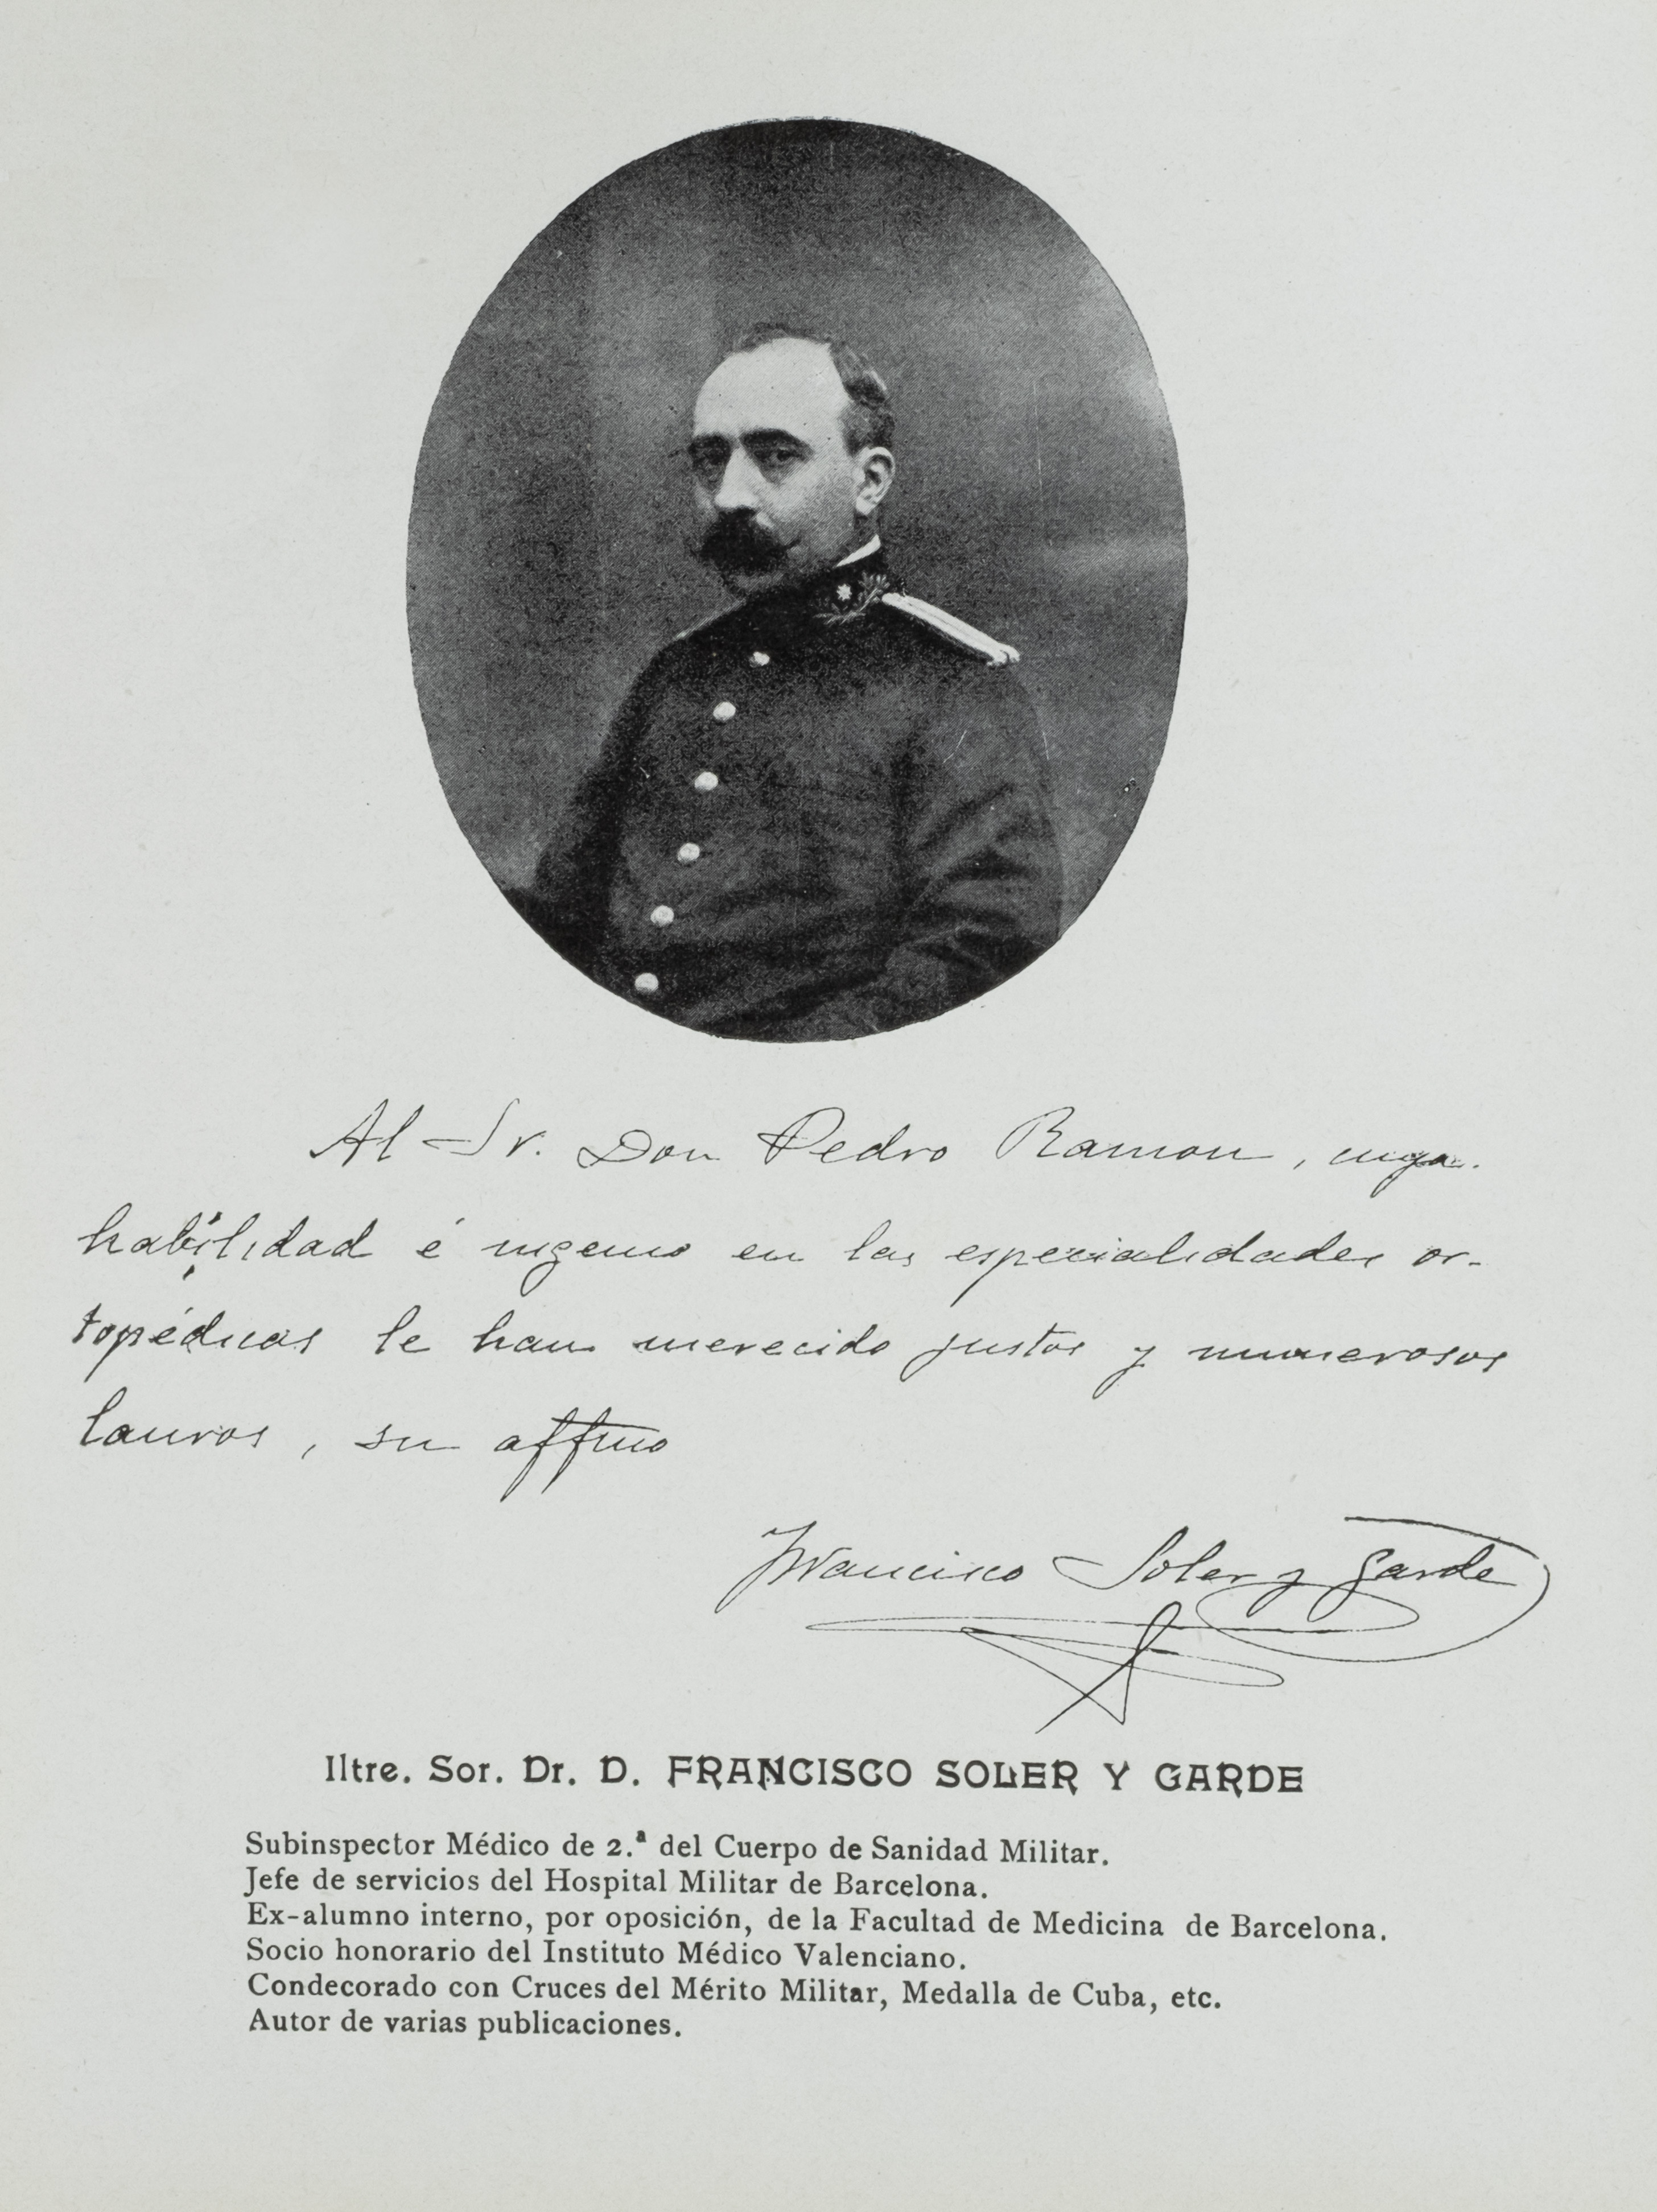 Al Sr. Don Pedro Ramon, cuya
habilidad é ingenio en las especialidades or-
topédicas le han merecido justos y numerosos
lauros, su affmo
Francisco Soler y Garde
Iltre. Sor. Dr. D. FRANCISCO SOLER Y GARDE
Subinspector Médico de 2.ª del Cuerpo de Sanidad Militar.
Jefe de servicios del Hospital Militar de Barcelona.
Ex-alumno interno, por oposición, de la Facultad de Medicina de Barcelona.
Socio honorario del Instituto Médico Valenciano.
Condecorado con Cruces del Mérito Militar, Medalla de Cuba, etc.
Autor de varias publicaciones.